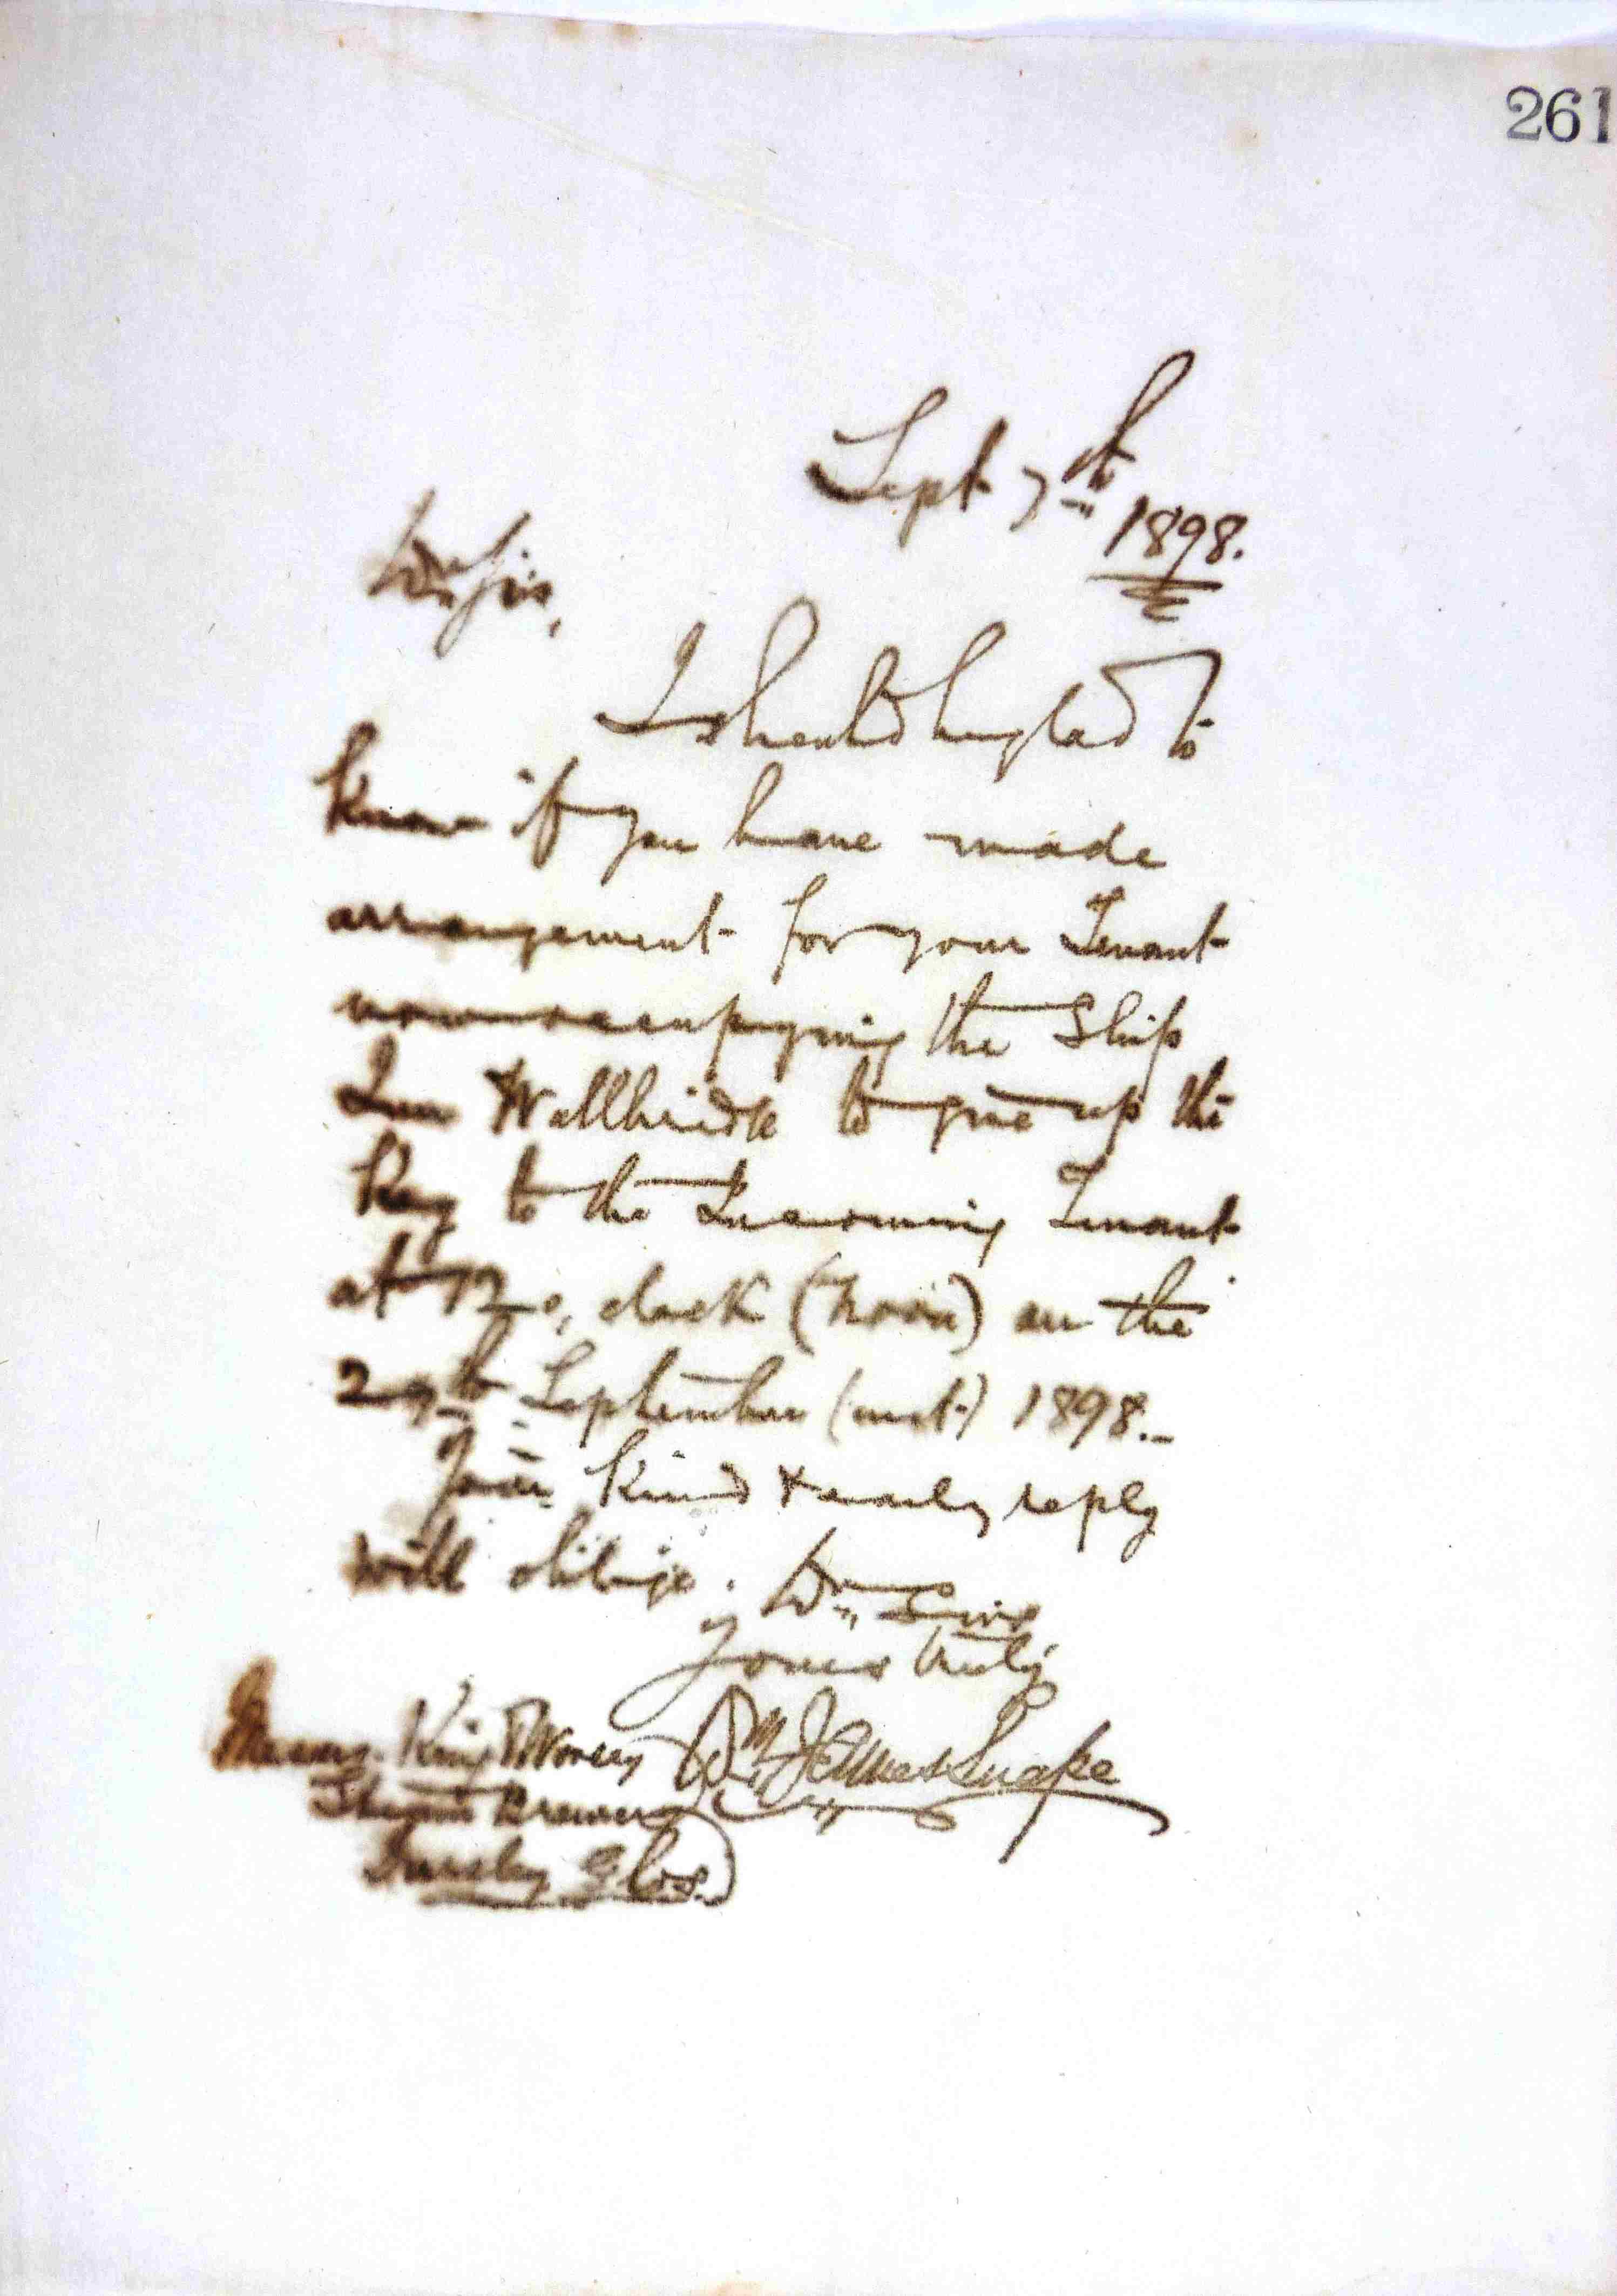 261
Sept 7th 1898.
Dr Sir,
I should be glad to
know if you have made
arrangement for your Tenant
now occupying the Ship
Inn Wallbridge to give up the
Key to the Incoming Tenant
at 12 o, clock (noon) on the
29th September (inst.) 1898.—
Your kind & early reply
will oblige. Dr Sirs
Yours truly
Messrs. King Wm James Snape
Brewers
Dursley Glos.